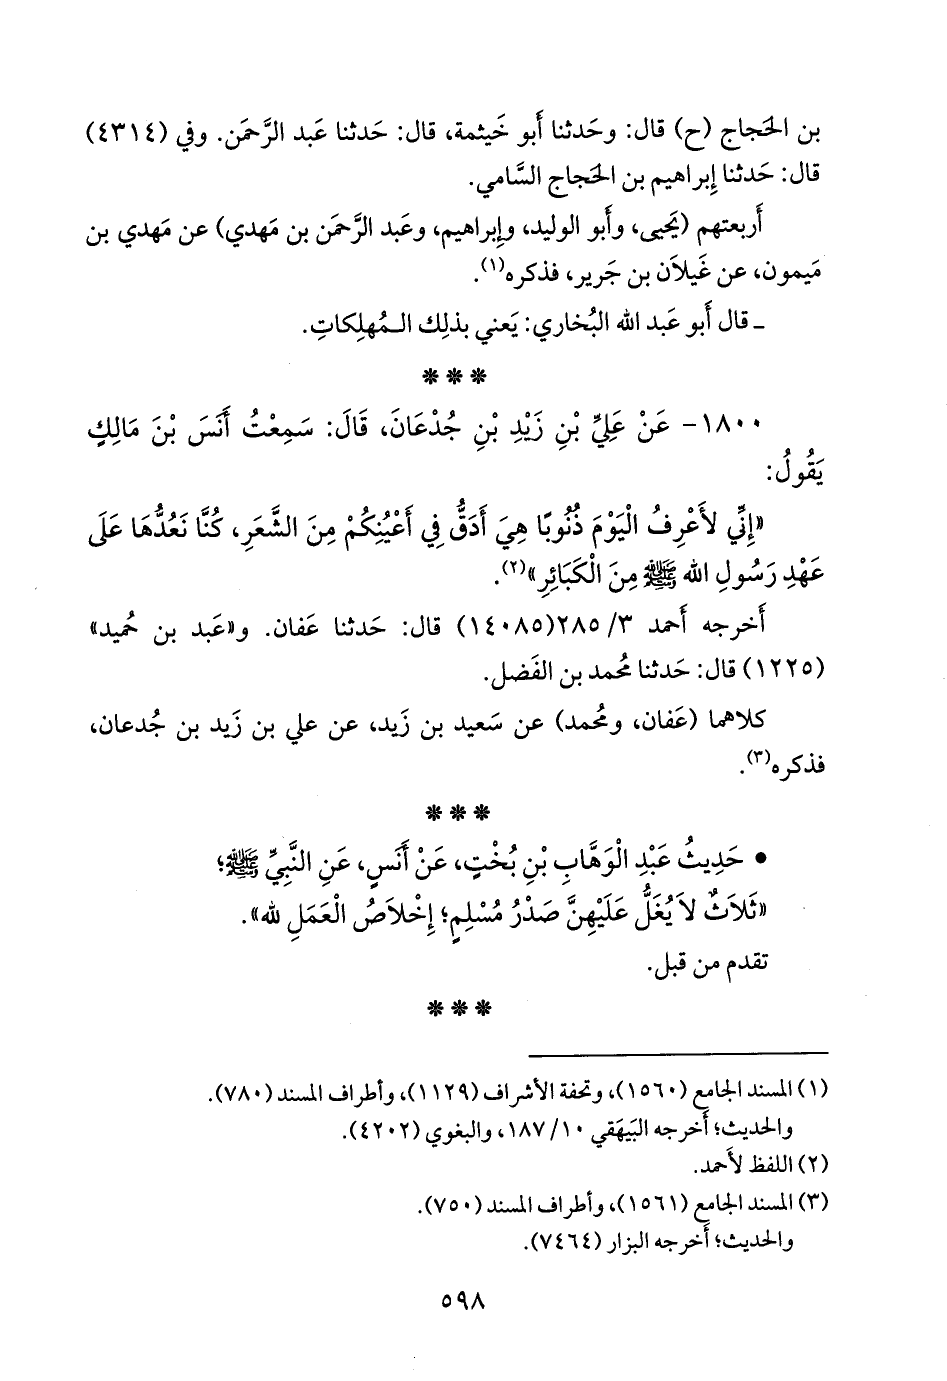 بن الحَجاج (ح) قال: وحَدثنا أَبو خَيثمة، قال: حَدثنا عَبد الرَّحمَن. وفي (٤٣١٤)
قال: حَدثنا إِبراهيم بن الحَجاج السَّامي.
أَربعتهم (يَحيى، وأَبو الوليد، وإِبراهيم، وعَبد الرَّحمَن بن مَهدي) عن مَهدي بن
مَيمون، عن غَيلاَن بن جَرير، فذكره(١).
ـ قال أَبو عَبد الله البُخاري: يَعني بذلِك الـمُهلِكاتِ.
* * *
١٨٠٠- عَنْ عَلِيِّ بْنِ زَيْدِ بْنِ جُدْعَانَ، قَالَ: سَمِعْتُ أَنَسَ بْنَ مَالِكٍ
يَقُولُ:
«إِنِّي لأَعْرِفُ الْيَوْمَ ذُنُوبًا هِيَ أَدَقُّ فِي أَعْيُنِكُمْ مِنَ الشَّعَرِ، كُنَّا نَعُدُّهَا عَلَى
عَهْدِ رَسُولِ الله ﷺ مِنَ الْكَبَائِرِ»(٢).
أَخرجه أَحمد ٣/ ٢٨٥(١٤٠٨٥) قال: حَدثنا عَفان. و«عَبد بن حُميد»
(١٢٢٥) قال: حَدثنا مُحمد بن الفَضل.
كلاهما (عَفان، ومُحمد) عن سَعيد بن زَيد، عن علي بن زَيد بن جُدعان،
فذكره(٣).
* * *
• حَدِيثُ عَبْدِ الْوَهَّابِ بْنِ بُخْتٍ، عَنْ أَنَسٍ، عَنِ النَّبِيِّ ﷺ؛
«ثَلاَثٌ لاَ يُغَلُّ عَلَيْهِنَّ صَدْرُ مُسْلِمٍ؛ إِخْلاَصُ الْعَمَلِ لله».
تقدم من قبل.
* * *
(١) المسند الجامع (١٥٦٠)، وتحفة الأشراف (١١٢٩)، وأطراف المسند (٧٨٠).
والحديث؛ أَخرجه البَيهَقي ١٠/ ١٨٧، والبغوي (٤٢٠٢).
(٢) اللفظ لأَحمد.
(٣) المسند الجامع (١٥٦١)، وأطراف المسند (٧٥٠).
والحديث؛ أَخرجه البزار (٧٤٦٤).
٥٩٨